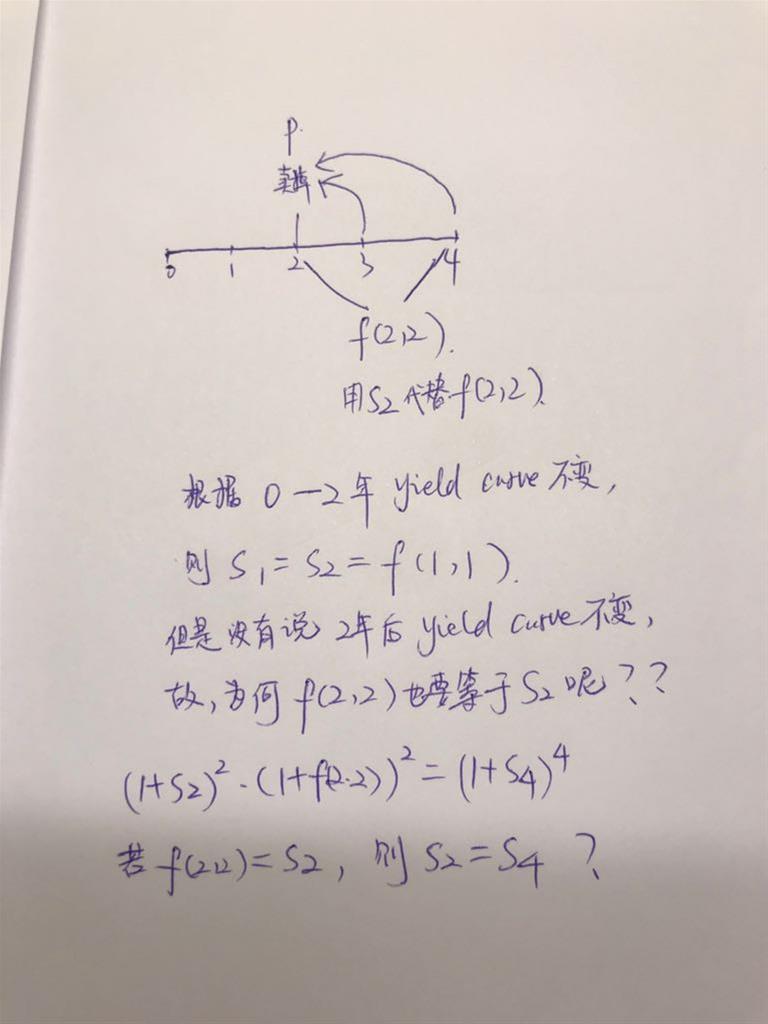 P.
卖掉
0 1 2 3 4
f(2,2).
用S2代替f(2,2).
根据 0—2年 yield curve 不变,
则 S₁ = S₂ = f(1,1).
但是没有说 2年后 yield curve 不变,
故,为何 f(2,2) 也要等于 S₂ 呢??
(1+S₂)²·(1+f(2·2))² = (1+S₄)⁴
若 f(2,2) = S₂, 则 S₂ = S₄ ?